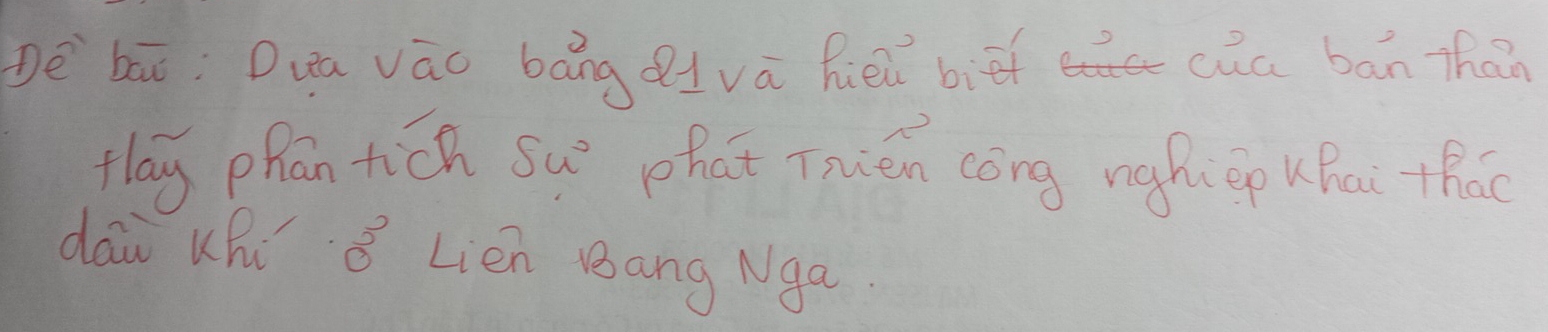 Đề bài: Dựa vào bảng 21 và hiểu biết của của bản thân
Hãy phân tích sự phát triển công nghiệp khai thác
dầu khí ở Liên Bang Nga.